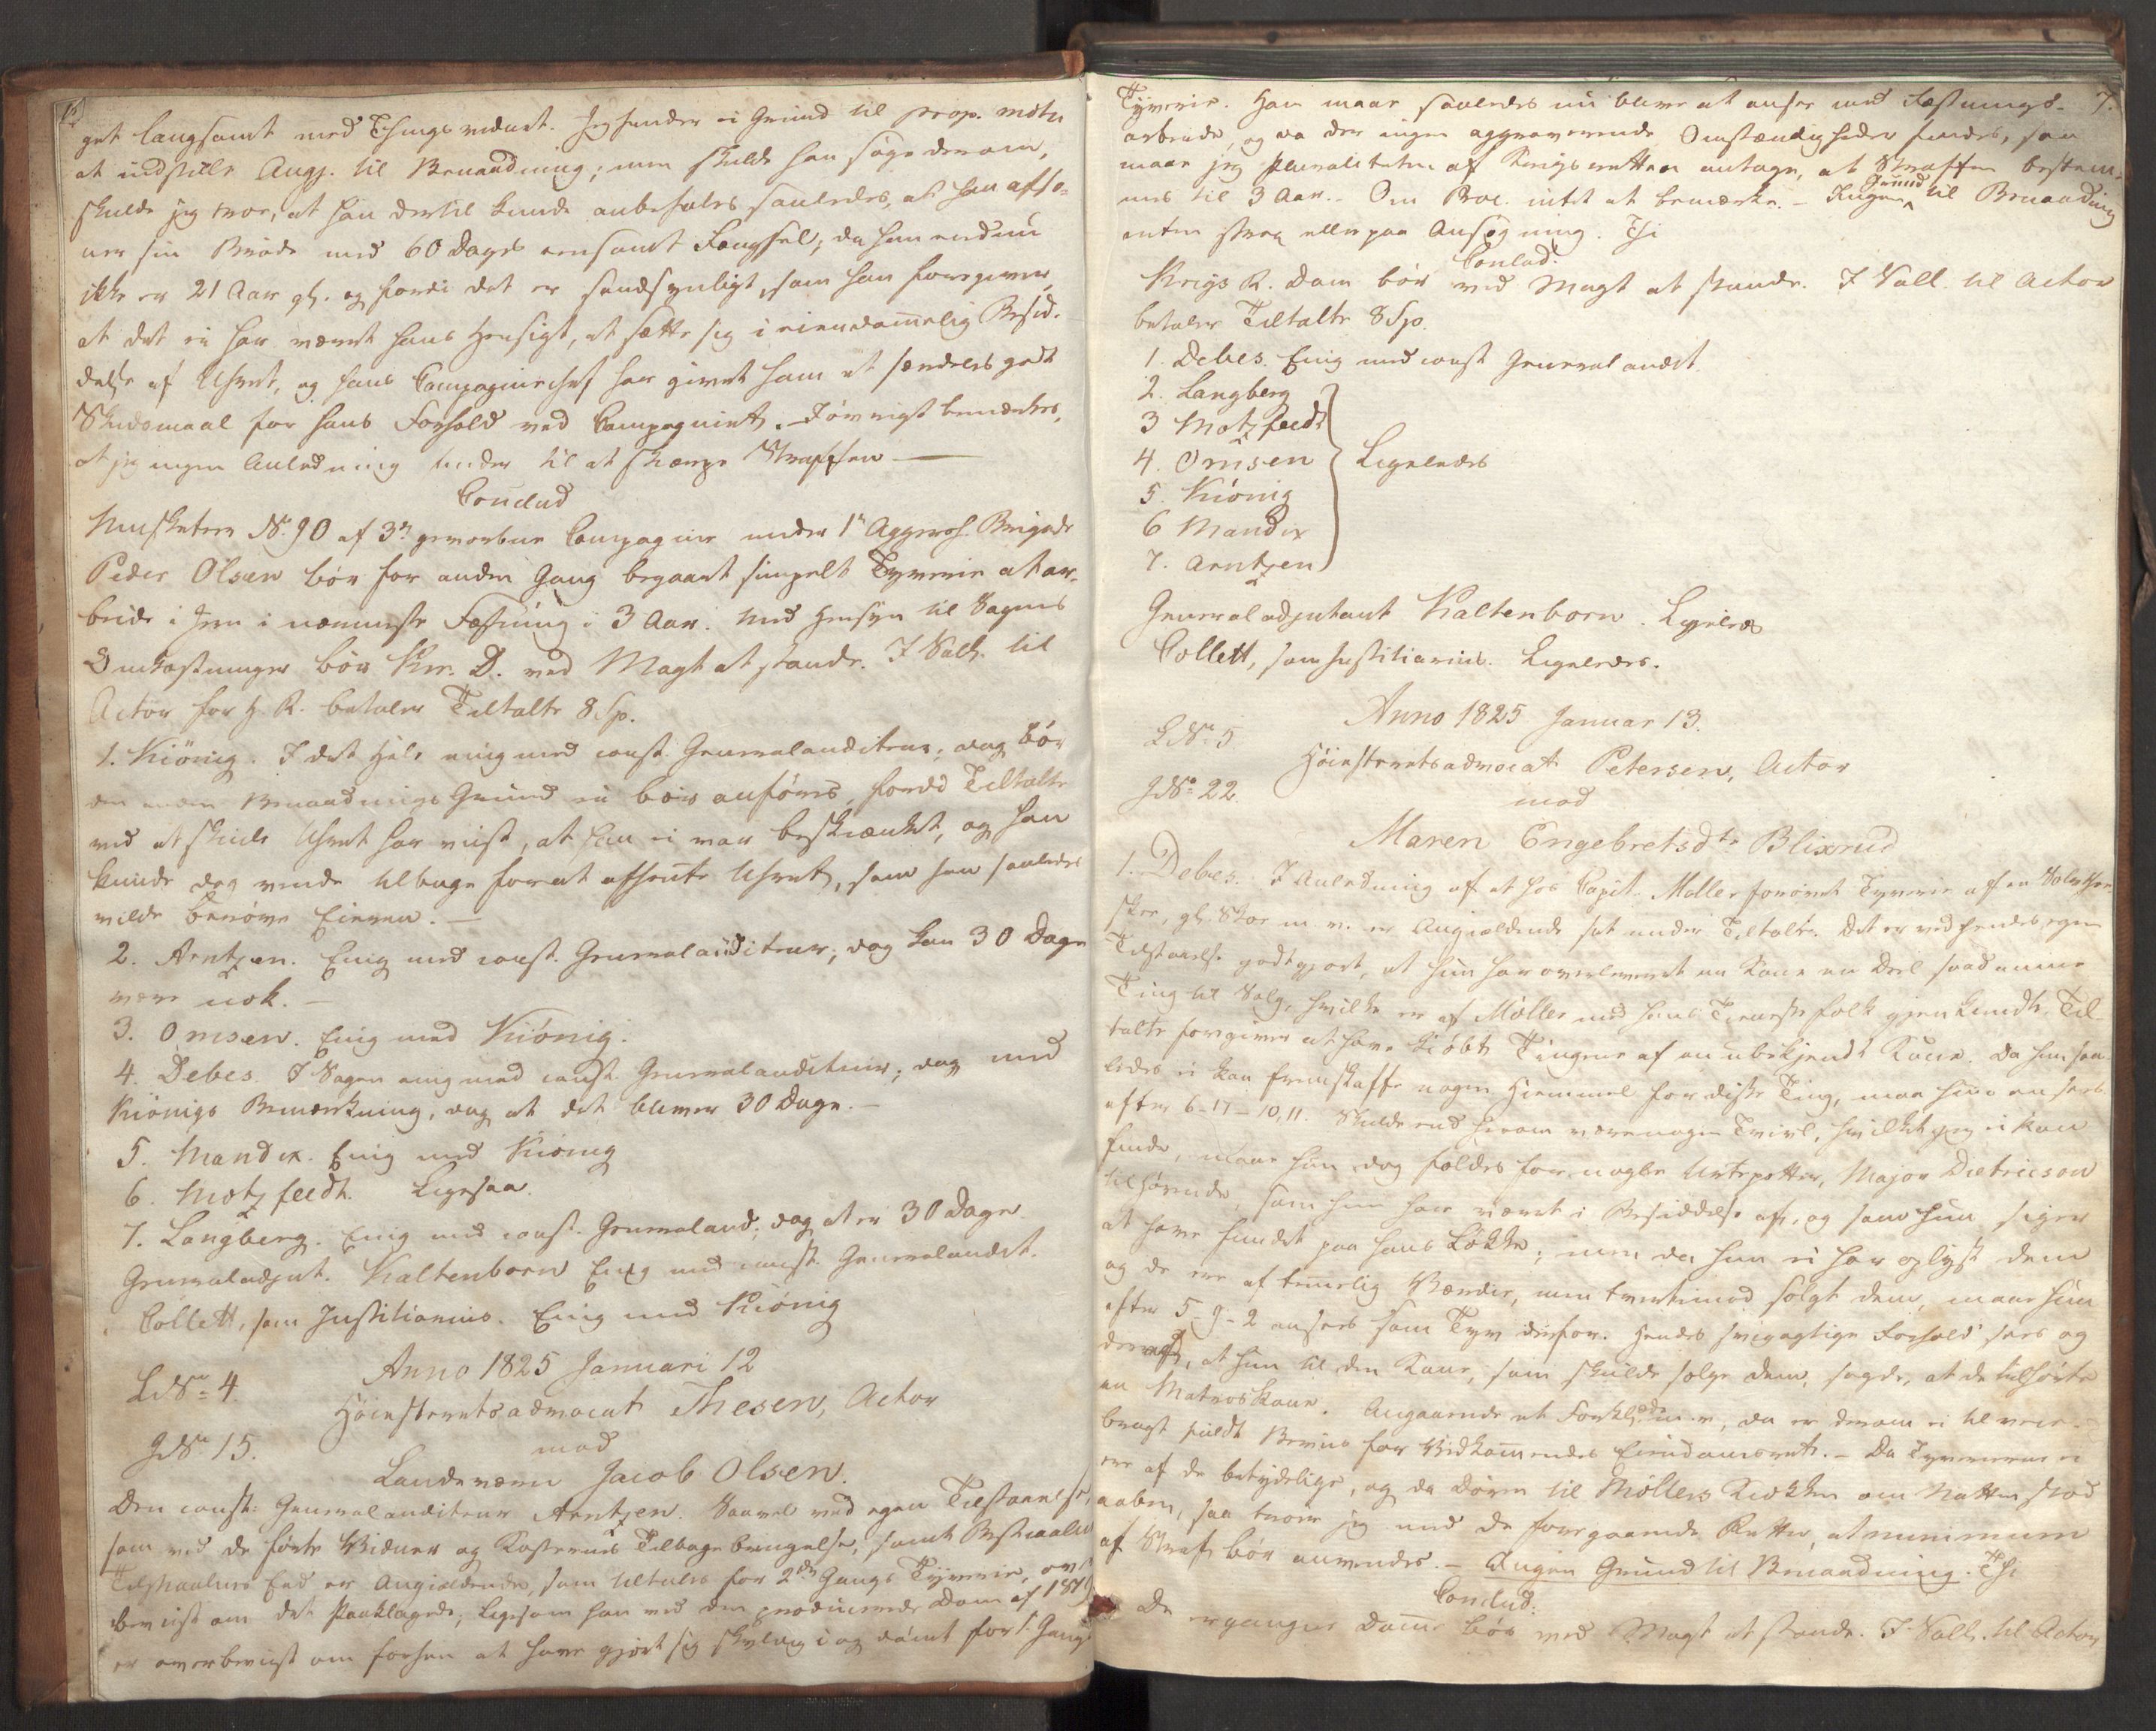 get langsomt med Things vidnet. Jeg finder ei Grund til prop. motu
at indstille Angj. til Benaadning; men skulde han søge derom,
skulde jeg troe, at han dertil kunde anbefales saaledes, at han afso-
ner sin Brøde med 60 Dages eensomt Fængsel; da han endnu
ikke er 21 Aar gl. og fordi det er sandsynligt, som han foregiver,
at det ei har været hans Hensigt, at sætte sig i eiendommelig Besid-
delse af Uhret, og hans Compagniechef har givet ham et særdeles godt
Skudsmaal for hans Forhold ved Compagniet. Iøvrigt bemærkes,
at jeg ingen Anledning finder til at skærpe Straffen
Conclud
Musketeer No 90 af 3die gevorbne Compagnie under 1ste Aggersh. Brigade
Peder Olsen bør for anden Gang begaaet simpelt Tyverie at ar-
beide i Jern i nærmeste Fæstning i 3 Aar. Med Hensyn til Sagens
Omkostninger bør Kr. D. ved Magt at stande. I Sall. til
Actor for H. R. betaler Tiltalte 8 Sp.
1. Kiönig. I det Hele enig med const. Generalauditeur; dog bør
den anden Benaadnings Grund ei bør anføres, fordi Tiltalte
ved at skiule Uhret har viist, at han ei var beskiænket, og han
kunde dog vende tilbage for at afhente Uhret, som han saaledes
vilde berøve Eieren. —
2. Arntzen. Enig med const. Generalauditeur; dog kan 30 Dage
være nok. —
3. Omsen. Enig med Kiönig.
4. Debes. I Sagen enig med const. Generalauditeur; dog med
Kiönigs Bemærkning, dog at det bliver 30 Dage. —
5. Mandix. Enig med Kiönig
6. Motzfeldt. Ligesaa.
7. Langberg. Enig med const. Generalaud; dog at er 30 Dage.
Generaladjut. Kaltenborn Enig med const. Generalaudit.
Collett, som Justitiarius. Enig med Kiönig
Anno 1825 Januari 12
L No 4.
Høiesteretsadvocat Thesen, Actor
J No 15.
mod
Landeværn Jacob Olsen.
Den const: Generalauditeur Arntzen. Saavel ved egen Tilstaaelse,
som ved de førte Vidner og Kosternes Tilbagebringelse, samt
Eed er Angiældende, som tiltales for 2den Gangs Tyverie, over
beviist om det Paaklagede; ligesom han ved den producerede Dom af
er overbeviist om forhen at have gjort sig skyldig i og dömt for 1. Gangs
7.
Tyverie. Han maae saaledes nu blive at ansee med Fæstnings-
arbeide, og da der ingen aggraverende Omstændigheder findes, saa
maae jeg Pluraliteten af Krigsretten antage, at Straffen bestem-
mes til 3 Aar. - Om Proc. intet at bemærke. - Ingen Grund til Benaadning
enten strax eller paa Ansøgning. Thi
Conclud:
Krigs R. Dom bør ved Magt at stande. I Sall. til Actor
betaler Tiltalte 8 Sp.
1. Debes. Enig med const Generalaudit.
2. Langberg
3 Motzfeldt
4. Omsen Ligeledes
5. Kiönig
6 Mandix
7. Arntzen
Generaladjutant Kaltenborn. Ligeledes
Collett, som Justitiarius. Ligeledes.
Anno 1825 Januar 13.
L No 5
Høiesteretsadvocat Petersen, Actor
J No 22.
mod
Maren Engebretsdtr Blixrud
1. Debes. I Anledning af et hos Capit. Møller forøvet Tyverie af en
skee, gl. Skoe m. v. er Angiældende sat under Tiltale. Det er ved hendes egen
Tilstaaelse godtgjort, at hun har overleveret en Kone en Deel saadanne
Ting til Salg, hvilke er af Møller med hans Tienestefolk gjenkiendte. Til-
talte foregiver at have kiøbt Tingene af en ubekjendt Kone. Da hun saa-
ledes ei kan fremskaffe nogen Hiemmel for disse Ting, maae hun ansees
efter 6-17-10, 11. Skulde end herom være nogen Tvivl, hvilket jeg ei kan
finde, maae hun dog fældes for nogle Urtepotter, Major Dietricson
tilhørende, som hun har været i Besiddelse af, og som hun siger
at have fundet paa hans Løkke; men da hun ei har oplyst dem
og de ere af temmelig Værdie, men tvertimod solgt dem, maae hun
efter 5-9-2 ansees som Tyv derfor. Hendes svigagtige Forhold sees og
deraf, at hun til den Kone, som skulde sælge dem, sagde, at de tilhørte
en Matroskone. Angaaende et Forklæde m. v., da er derom ei tilveie-
bragt fuldt Beviis for Vedkommendes Eiendomsret. - Da Tyverierne ei
ere af de betydelige, og da Døren til Møllers Kiøkken om Natten stod
aaben, saa troer jeg med de foregaaende Retter, at minimum
af Straf bør anvendes. - Ingen Grund til Benaadning. Thi
Conclud:
De ergangne Domme bør ved Magt at stande. I Sall. til Actor,